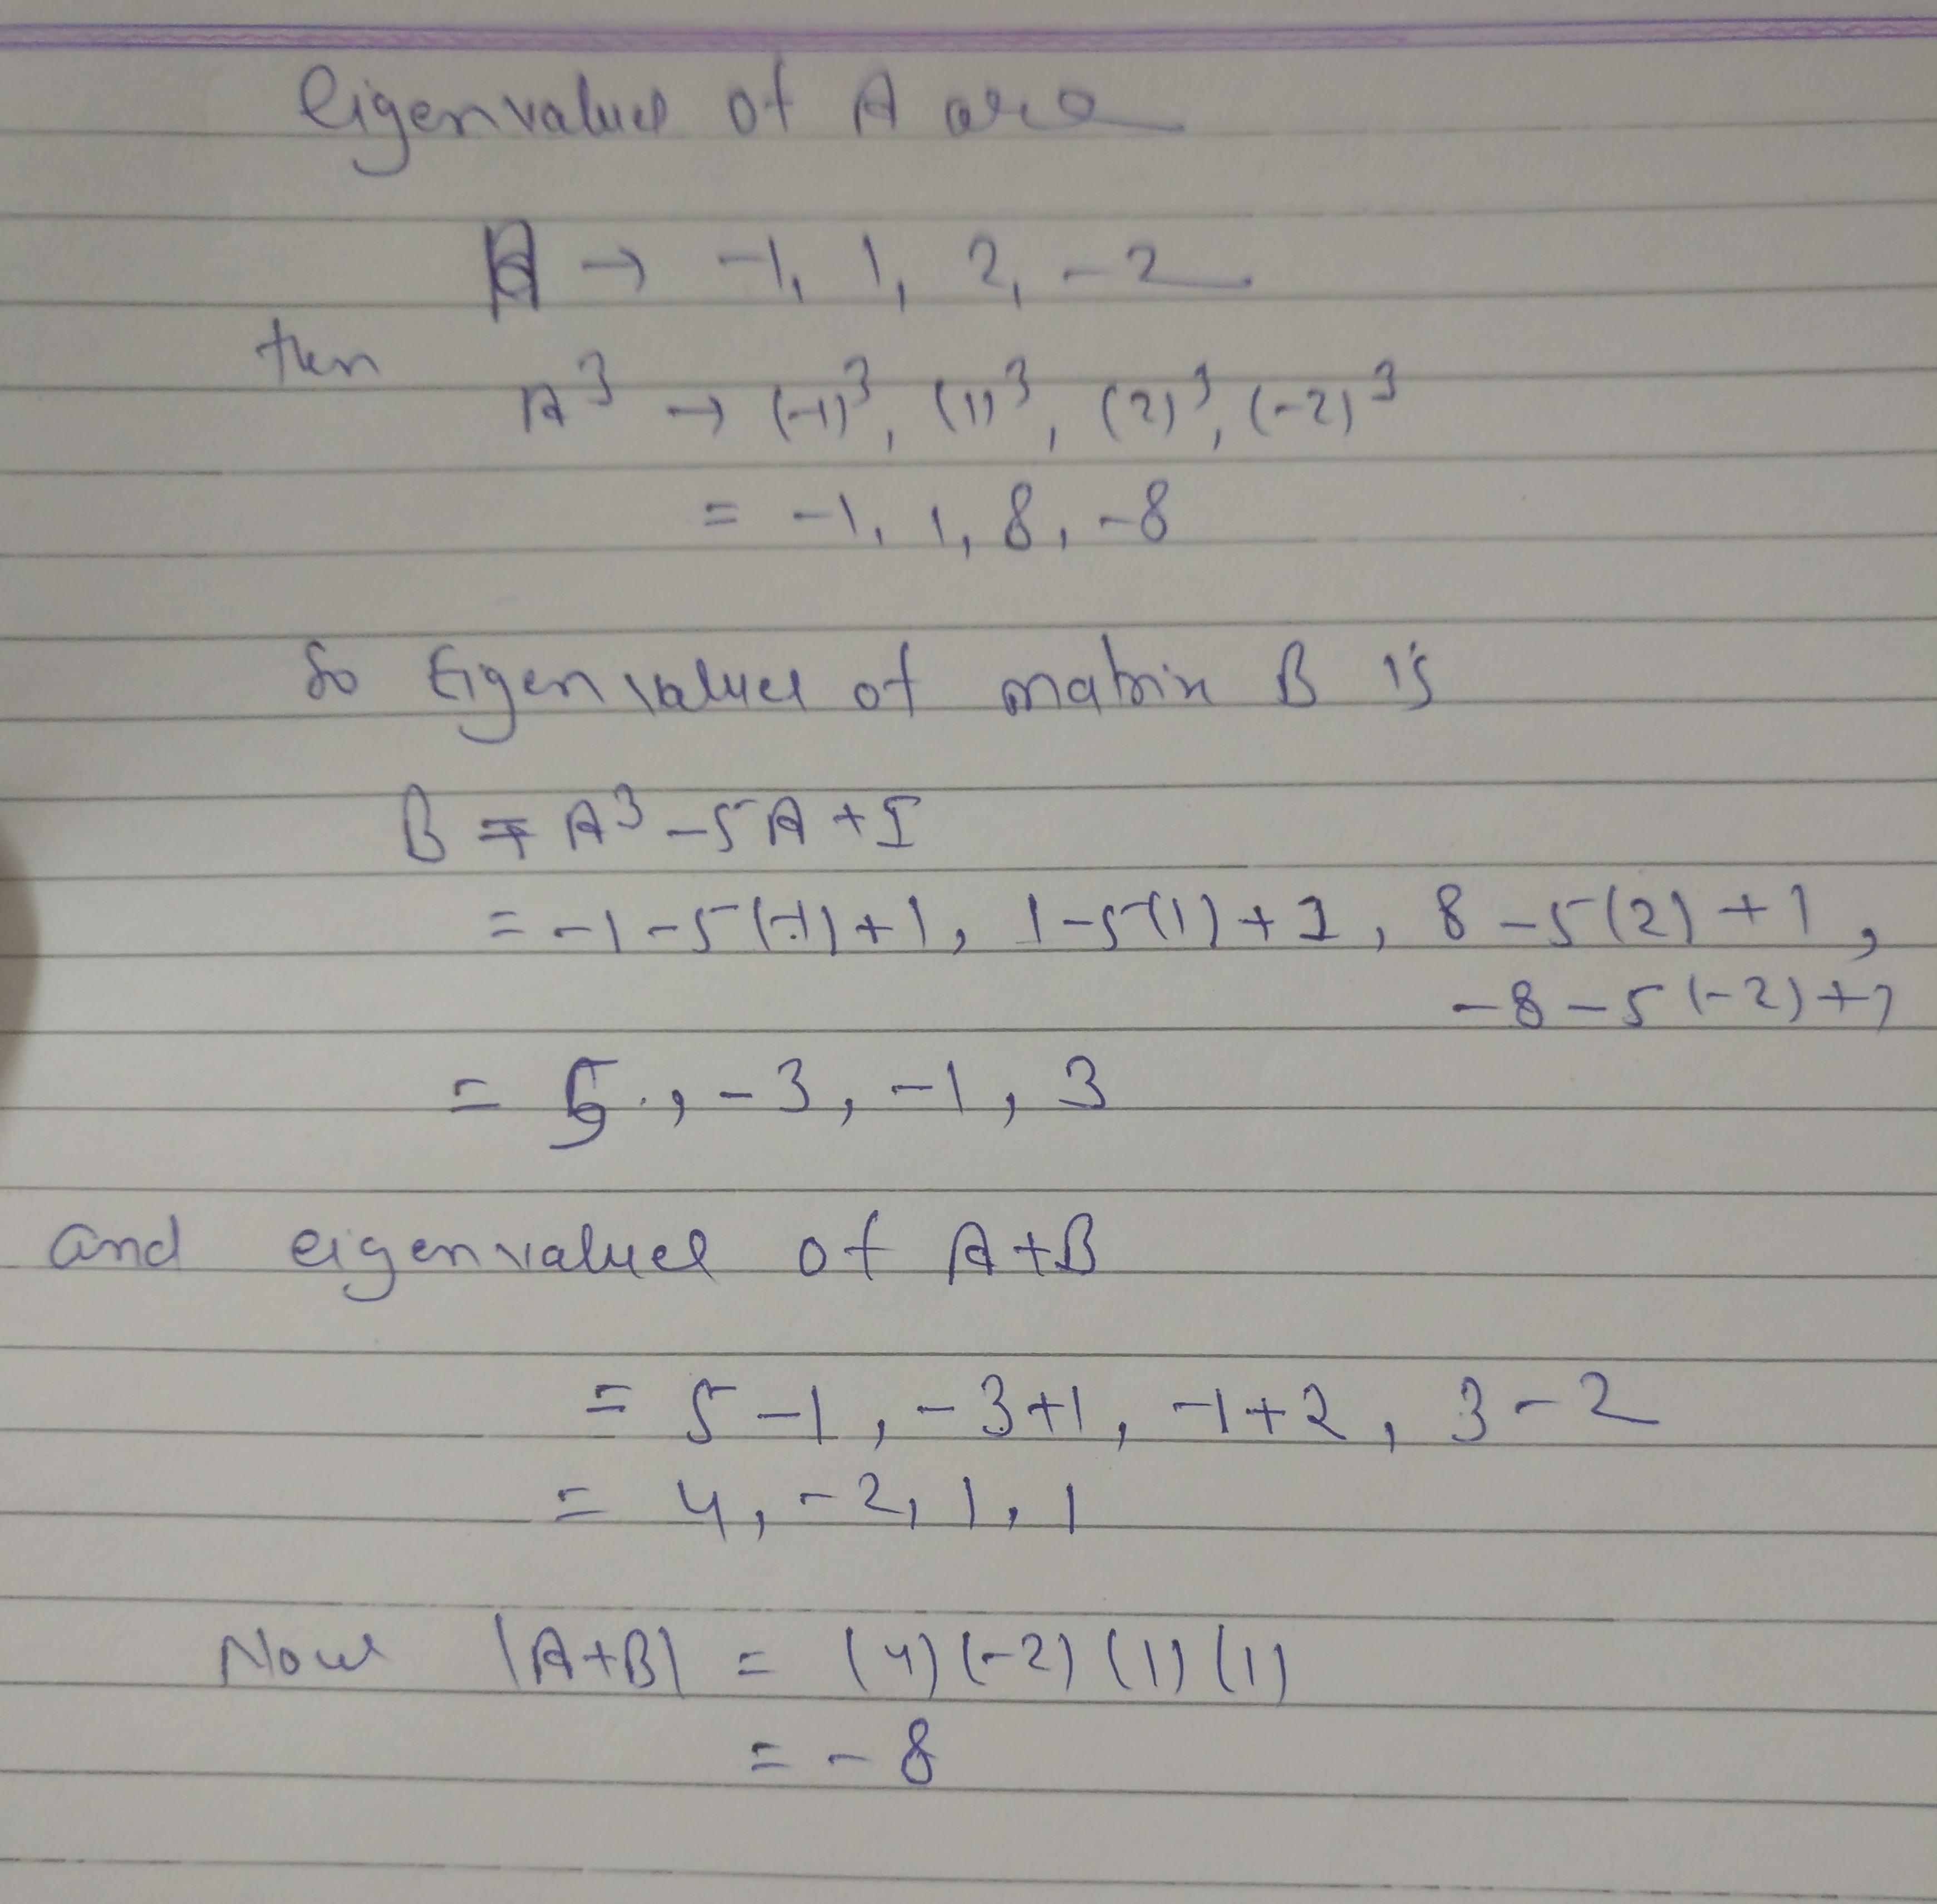 Eigenvalues of A are
A → -1, 1, 2, -2
then
A³ → (-1)³, (1)³, (2)³, (-2)³
= -1, 1, 8, -8
So Eigen values of matrix B is
B = A³ - 5A + I
= -1 - 5(-1) + 1, 1 - 5(1) + 1, 8 - 5(2) + 1,
-8 - 5(-2) + 1
= 5, -3, -1, 3
and eigenvalues of A+B
= 5-1, -3+1, -1+2, 3-2
= 4, -2, 1, 1
Now |A+B| = (4)(-2)(1)(1)
= -8